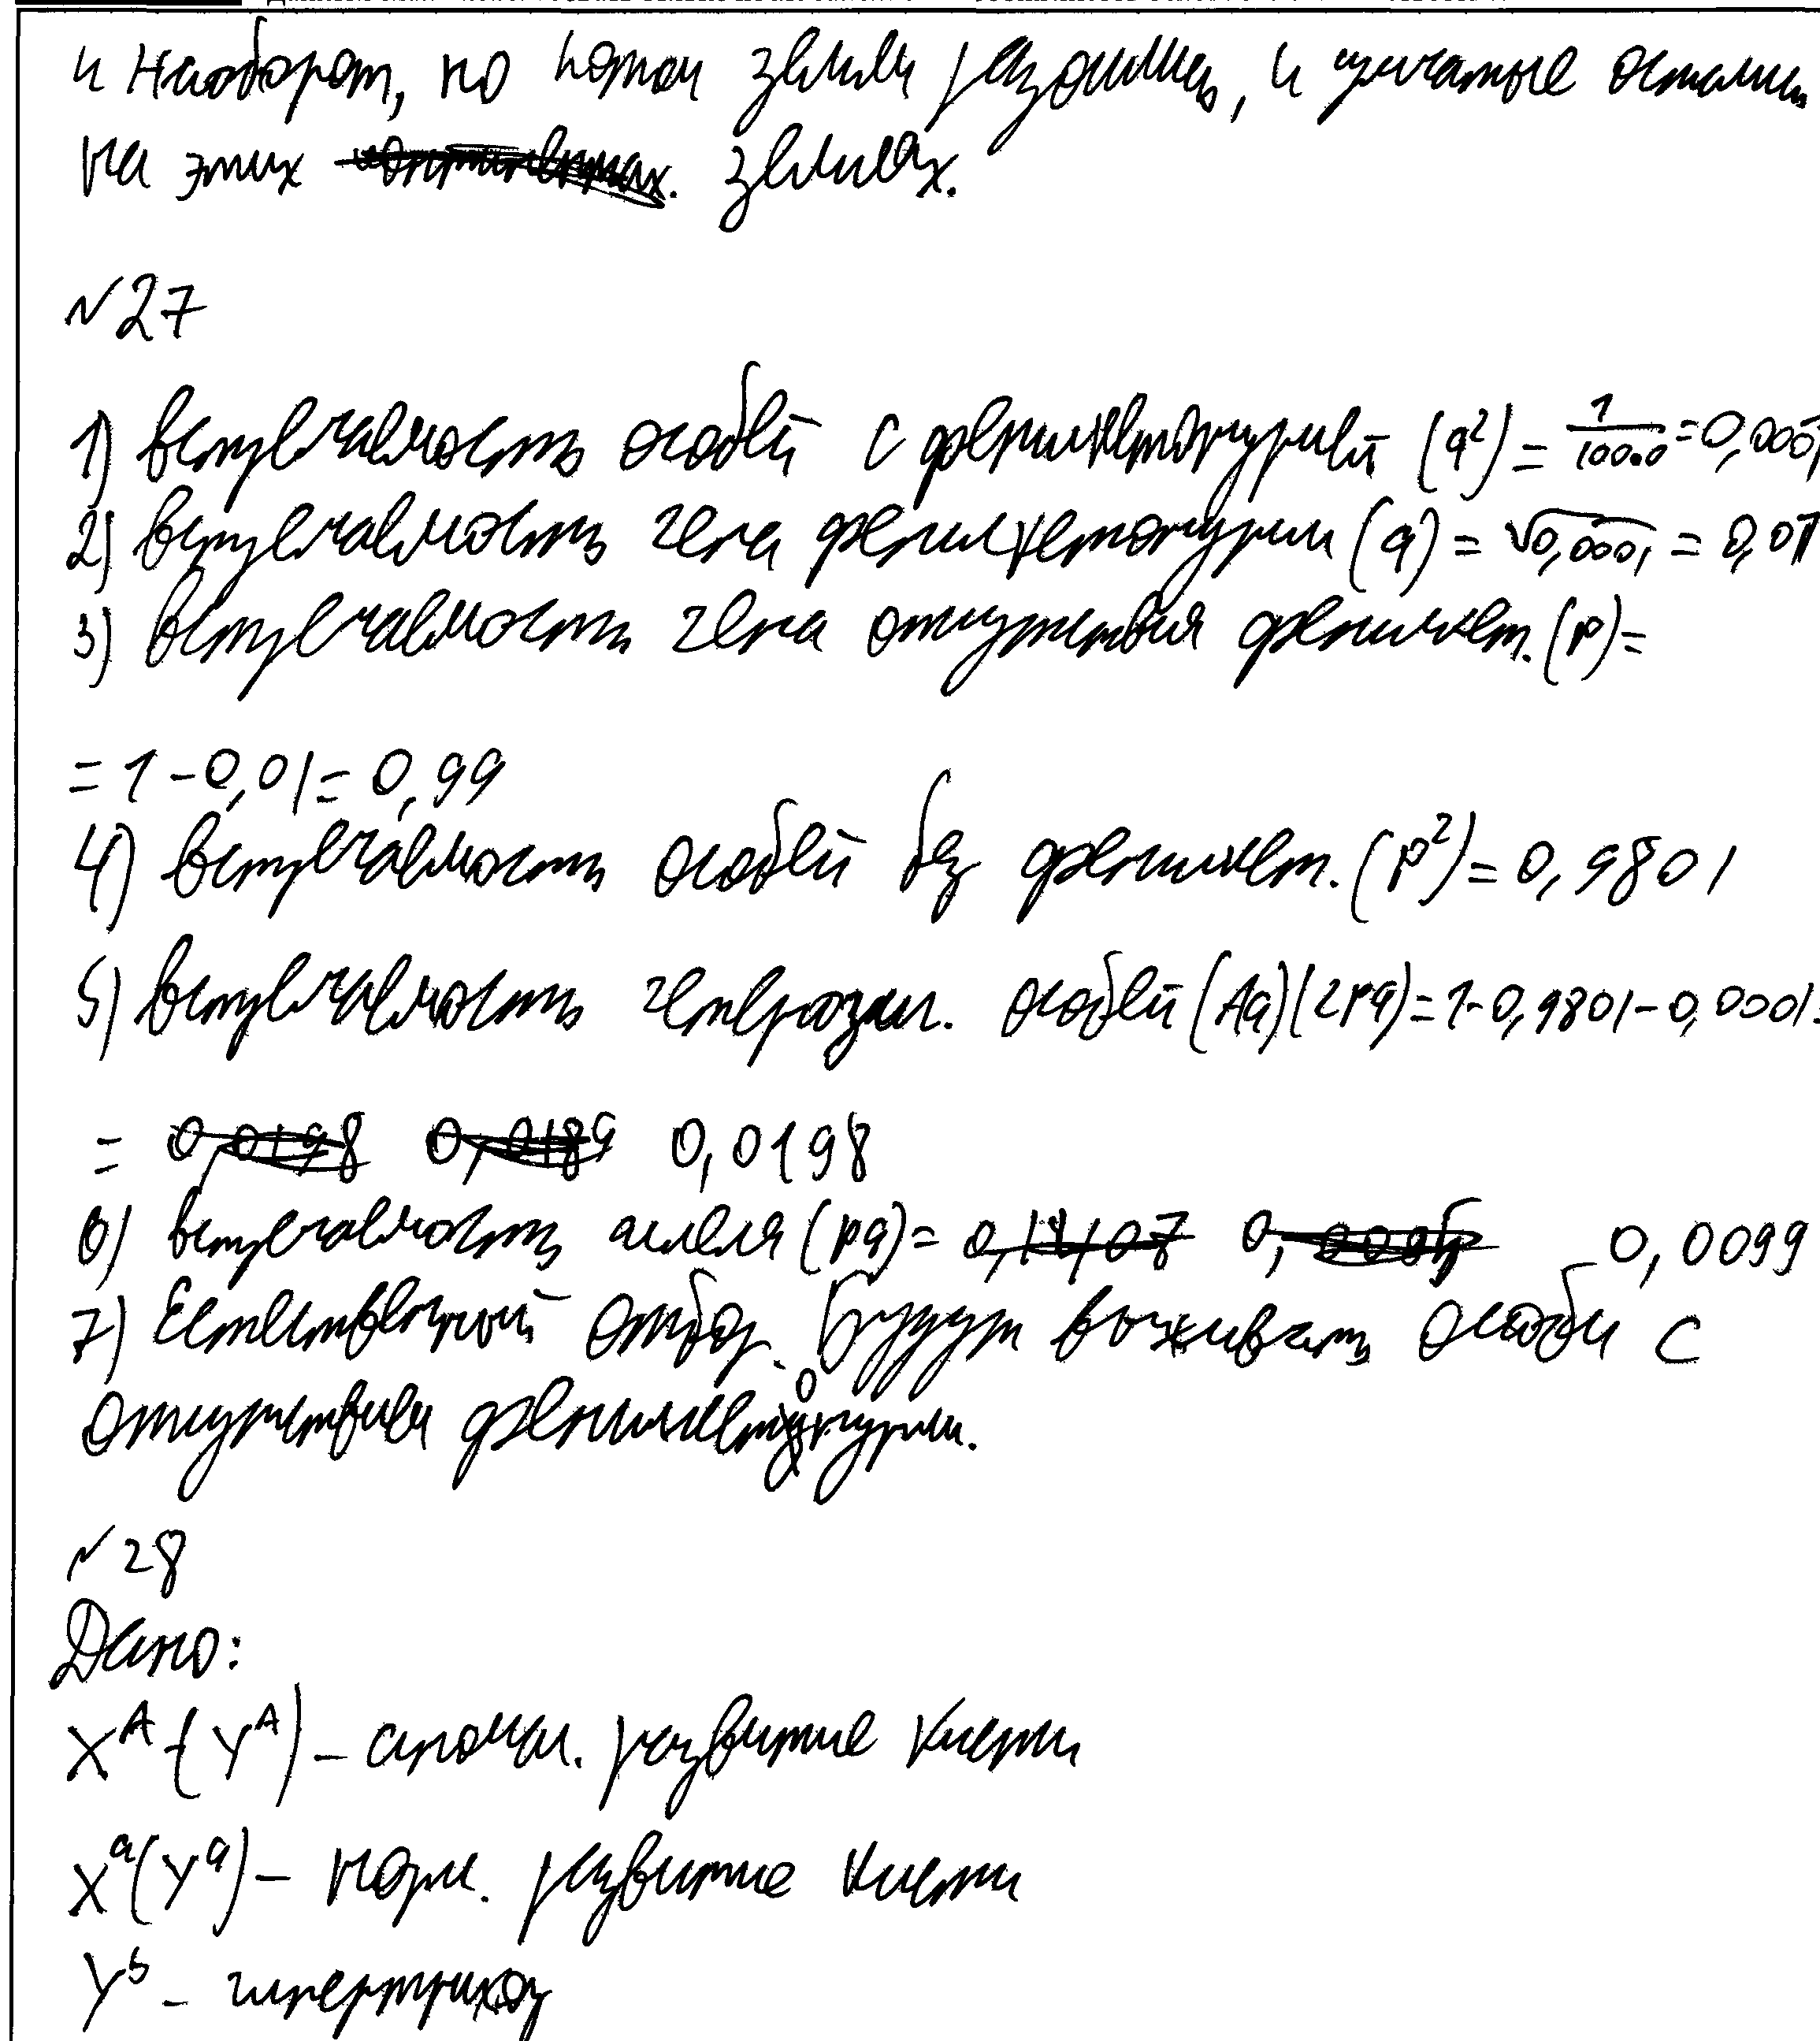 и наоборот, но потом земли разошлись, и сумчатые остались
на этих землях.
№27
1) встречаемость особей с фенилкетонурией (q²) = 1/10000 = 0,0001
2) встречаемость гена фенилкетонурии (q) = √0,0001 = 0,01
3) встречаемость гена отсутствия фенилкет. (p) =
= 1 - 0,01 = 0,99
4) встречаемость особей без фенилкет. (p²) = 0,9801
5) встречаемость гетерозиг. особей (Aa)(2pq) = 1 - 0,9801 - 0,0001 =
= 0,0198 0,0189 0,0198
6) встречаемость аллеля (pq) = 0,1407 0, 0,0099
7) Естественный отбор. Будут выживать особи с
отсутствием фенилкетонурии.
№28
Дано:
X^A (Y^A) – аномал. развитие кисти
X^a (Y^a) – норм. развитие кисти
Y^b – гипертрихоз